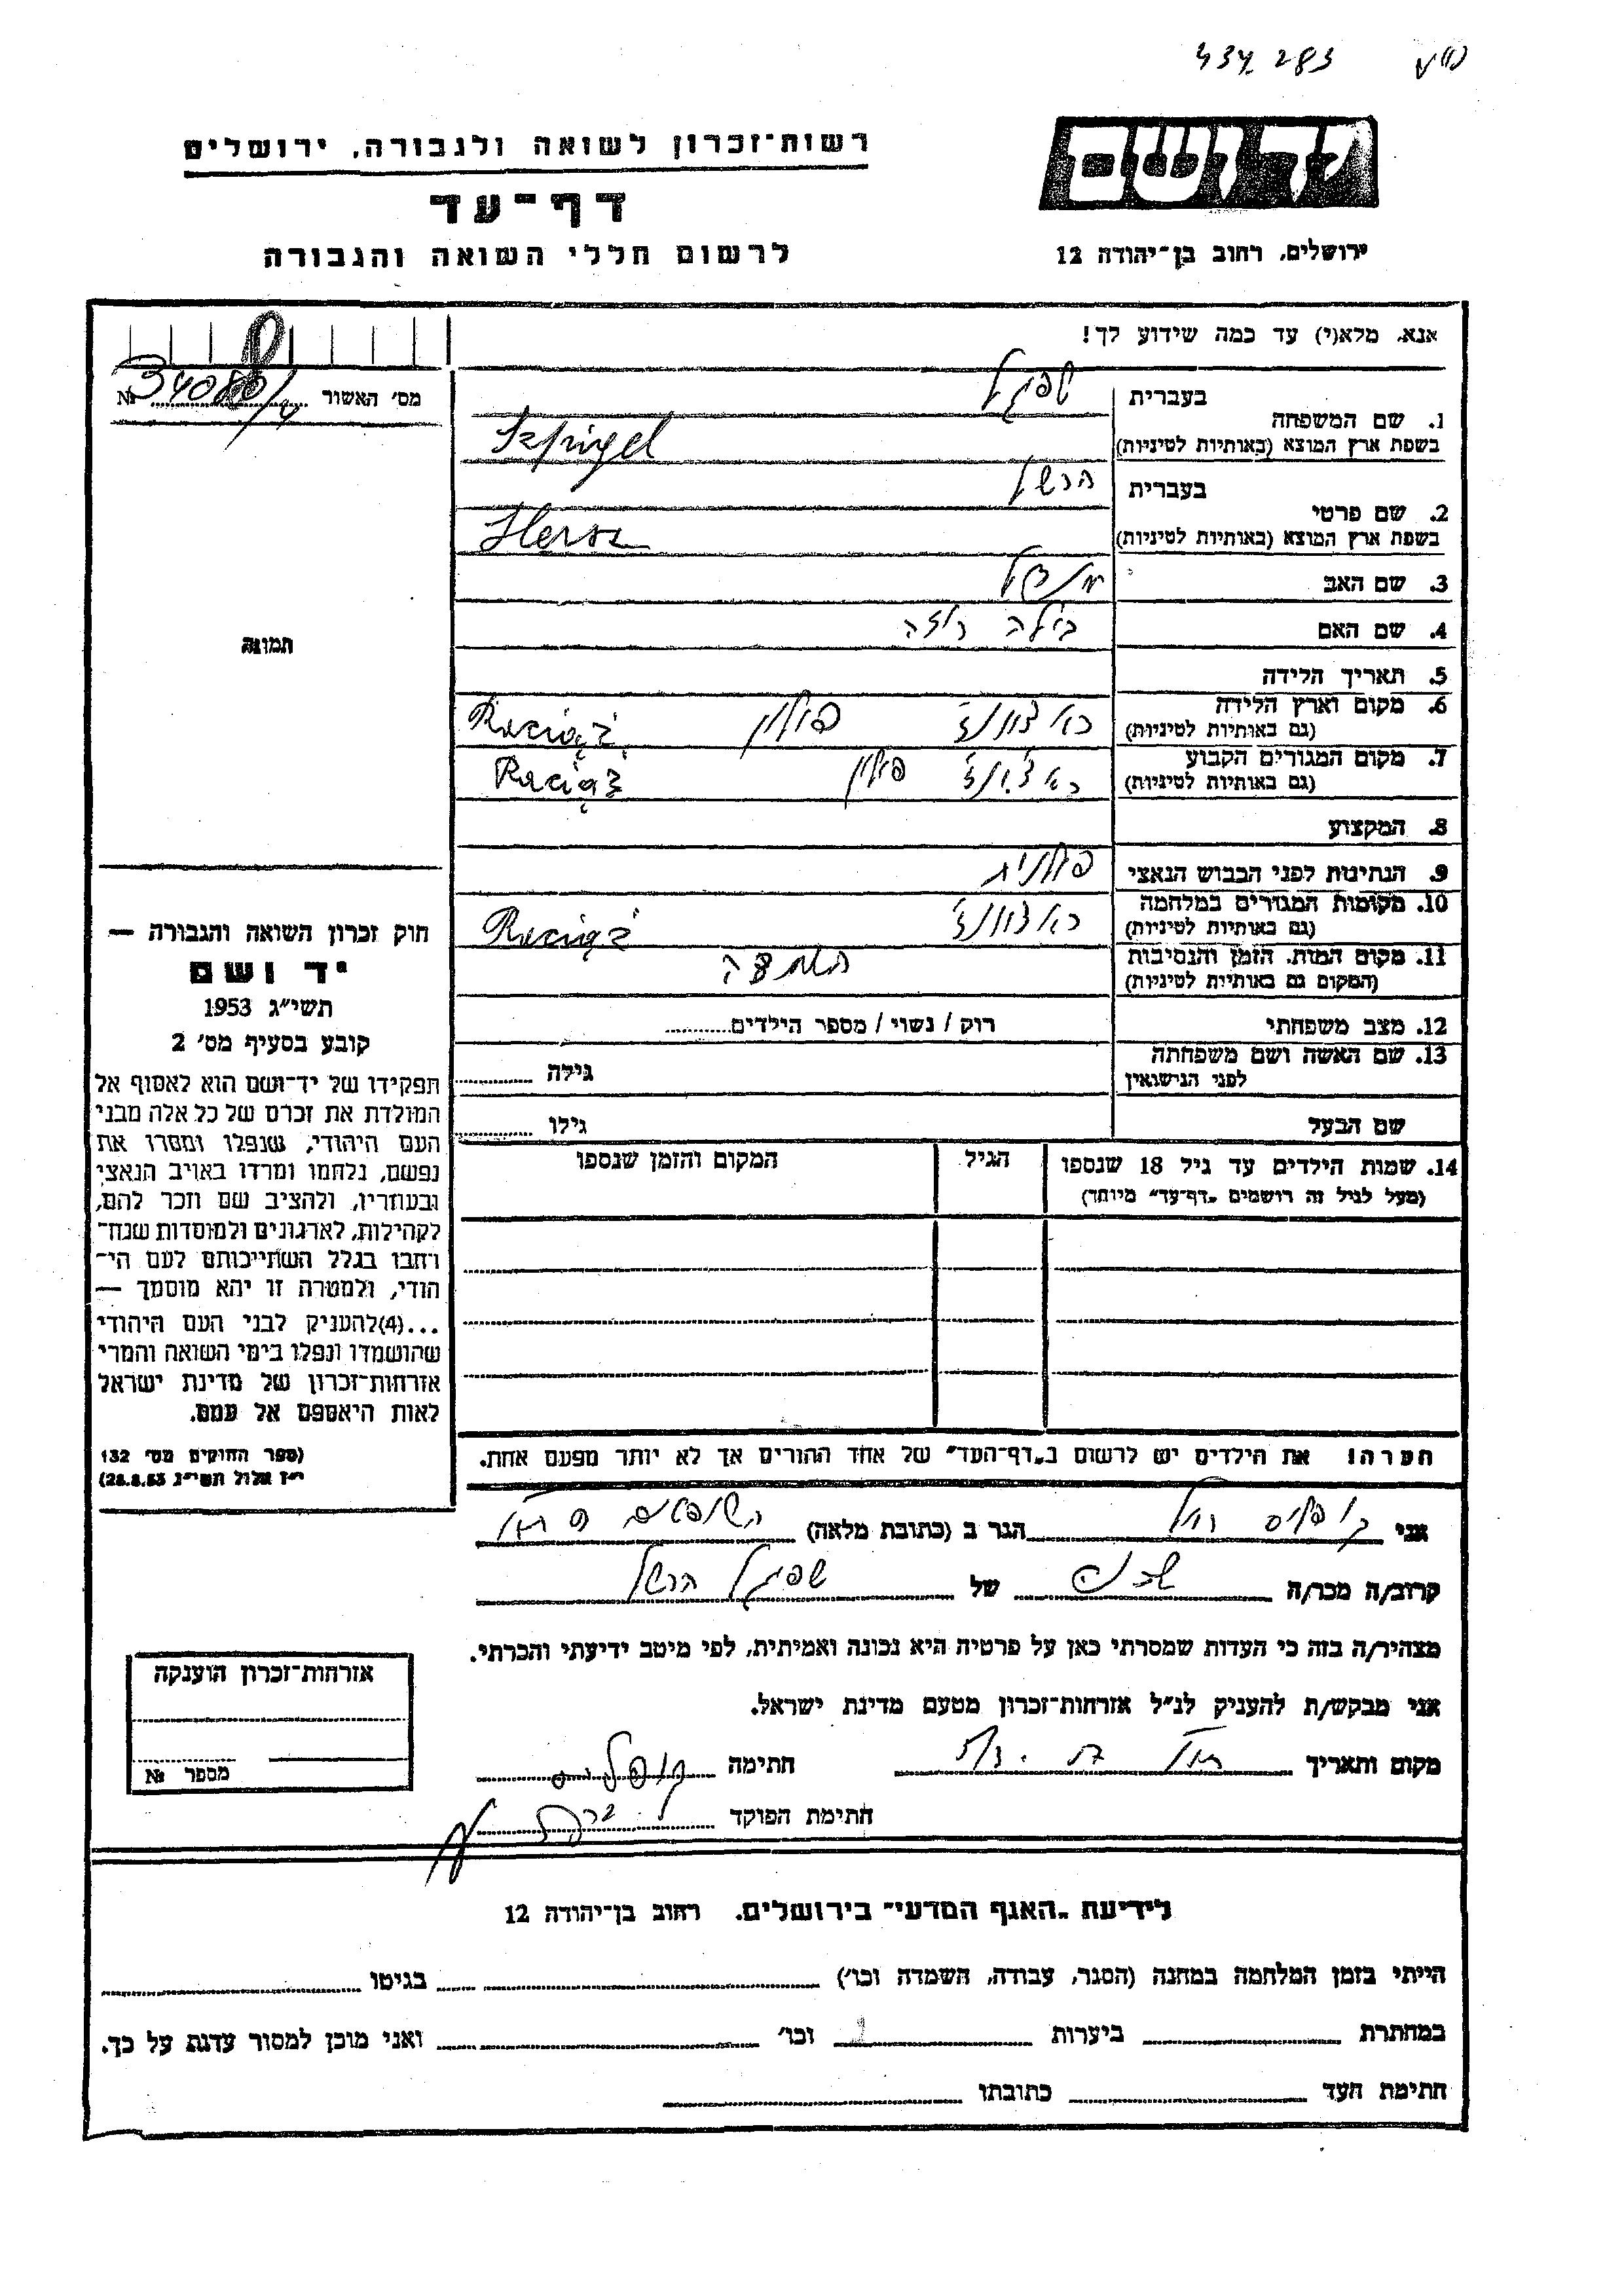 434 283
רשות־זכרון לשואה ולגבורה, ירושלים
יד ושם
דף־עד
לרשום חללי השואה והגבורה
ירושלים, רחוב בן־יהודה 12
אנא, מלא(י) עד כמה שידוע לך!
מס' האשור №
1. שם המשפחה
בעברית שפיגל
בשפת ארץ המוצא (באותיות לטיניות) Szpigel
2. שם פרטי
בעברית הרשל
בשפת ארץ המוצא (באותיות לטיניות) Hersz
3. שם האב
4. שם האם ביילה רוזה
5. תאריך הלידה
6. מקום וארץ הלידה פולין Raciąż
(גם באותיות לטיניות)
7. מקום המגורים הקבוע פולין Raciąż
(גם באותיות לטיניות)
8. המקצוע
9. הנתינות לפני הכבוש הנאצי פולנית
10. מקומות המגורים במלחמה Raciąż
(גם באותיות לטיניות)
11. מקום המות, הזמן והנסיבות
(המקום גם באותיות לטיניות)
12. מצב משפחתי רוק / נשוי / מספר הילדים
13. שם האשה ושם משפחתה גילה
לפני הנישואין
שם הבעל גילו
14. שמות הילדים עד גיל 18 שנספו הגיל המקום והזמן שנספו
(מעל לגיל זה רושמים „דף־עד" מיוחד)
הערה! את הילדים יש לרשום ב„דף־העד" של אחד ההורים אך לא יותר מפעם אחת.
תמונה
חוק זכרון השואה והגבורה —
יד ושם
תשי"ג 1953
קובע בסעיף מס' 2
תפקידו של יד־ושם הוא לאסוף אל
המולדת את זכרם של כל אלה מבני
העם היהודי, שנפלו ומסרו את
נפשם, נלחמו ומרדו באויב הנאצי
ובעוזריו, ולהציב שם וזכר להם,
לקהילות, לארגונים ולמוסדות שנח־
רבו בגלל השתייכותם לעם הי־
הודי, ולמטרה זו יהא מוסמך —
...(4)להעניק לבני העם היהודי
שהושמדו ונפלו בימי השואה והמרי
אזרחות־זכרון של מדינת ישראל
לאות היאספם אל עמם.
(ספר החוקים מס' 132
י"ז אלול תשי"ג 28.8.53)
אני הגר ב (כתובת מלאה)
קרוב/ה מכר/ה שכן של שפיגל הרשל
מצהיר/ה בזה כי העדות שמסרתי כאן על פרטיה היא נכונה ואמיתית, לפי מיטב ידיעתי והכרתי.
אני מבקש/ת להעניק לנ"ל אזרחות־זכרון מטעם מדינת ישראל.
מקום ותאריך חתימה
חתימת הפוקד
אזרחות־זכרון הוענקה
מספר №
לידיעת „האגף המדעי" בירושלים, רחוב בן־יהודה 12
הייתי בזמן המלחמה במחנה (הסגר, עבודה, השמדה וכו') בגיטו
במחתרת ביערות וכו' ואני מוכן למסור עדות על כך.
חתימת העד כתובתו